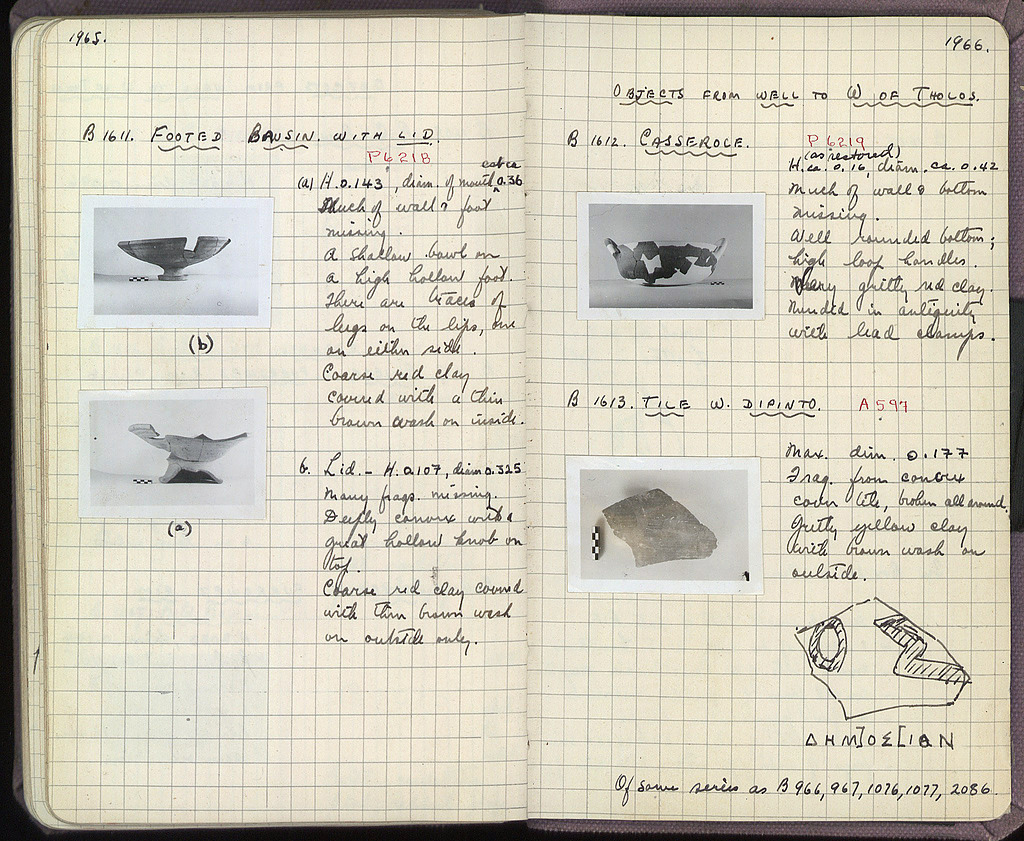 1965.
B 1611. FOOTED BAUSIN. WITH LID.
P 6218
est ca
(a) H. 0.143, diam. of mouth ^ 0.36
Much of wall & foot
missing.
A shallow bowl on
a high hollow foot.
There are traces of
lugs on the lips, one
on either side.
Coarse red clay
covered with a thin
brown wash on inside.
(b)
(a)
b. Lid. – H. 0.107, diam 0.325
Many frags. missing.
Deeply convex with a
great hollow knob on
top.
Coarse red clay covered
with thin brown wash
on outside only.
1966.
OBJECTS FROM WELL TO W OF THOLOS.
B 1612. CASSEROLE.
P 6219
(as restored)
H. ca. 0.16, diam. ca. 0.42
Much of wall & bottom
missing.
Well rounded bottom;
high loop handles.
gritty red clay.
Mended in antiquity
with lead clamps.
B 1613. TILE W. DIPINTO.
A 597
Max. dim. 0.177
Frag. from convex
cover tile, broken all around.
Gritty yellow clay
with brown wash on
outside.
ΔHM]OΣ[IΟN
Of same series as B 966, 967, 1076, 1077, 2086.